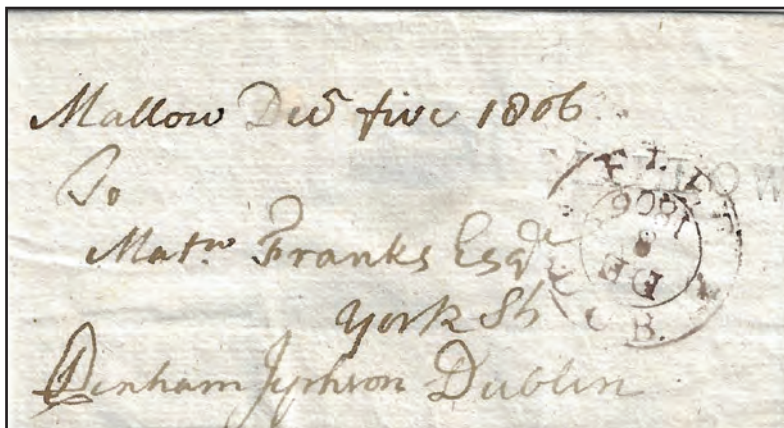 Mallow Decr five 1806
To
Matw Franks Esqr
York St
Denham Jephson Dublin
1806
8
DE
B.